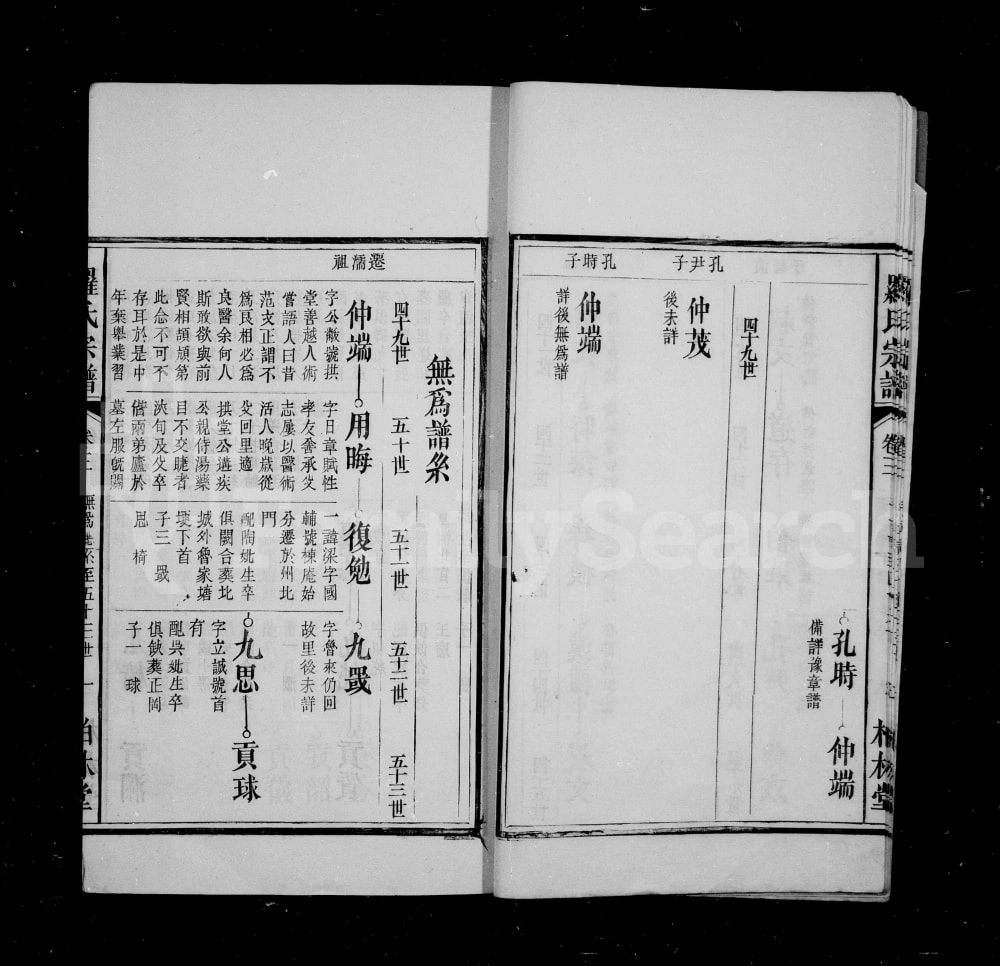 羅氏宗譜
卷三
柏林堂
孔時
備詳豫章譜
仲端
四十九世
孔尹子
仲茂
後未詳
孔時子
仲端
詳後無為譜
無為譜系
四十九世
五十世
五十一世
五十二世
五十三世
遷濡祖
仲端
用晦
復勉
九戢
字公敝號拱
堂善越人術
嘗語人曰昔
范文正謂不
為良相必為
良醫余何人
斯敢欲與前
賢相頡頏第
此念不可不
存耳於是中
年棄舉業習
字日章賦性
孝友善承父
志屢以醫術
活人晚歲從
父回里適
拱堂公遘疾
公親侍湯藥
目不交睫者
浹旬及父卒
偕兩弟廬於
墓左服既闋
一諱梁字國
輔號棟庵始
分遷於州北
門
配陶妣生卒
俱闕合葬北
城外魯家塘
埂下首
子三
思
椅
字魯來仍回
故里後未詳
九思
貢球
字立誠號首
有
配吳妣生卒
俱缺葬正岡
子一 球
羅氏宗譜
卷三
無為
系至五十三世
一
柏林堂